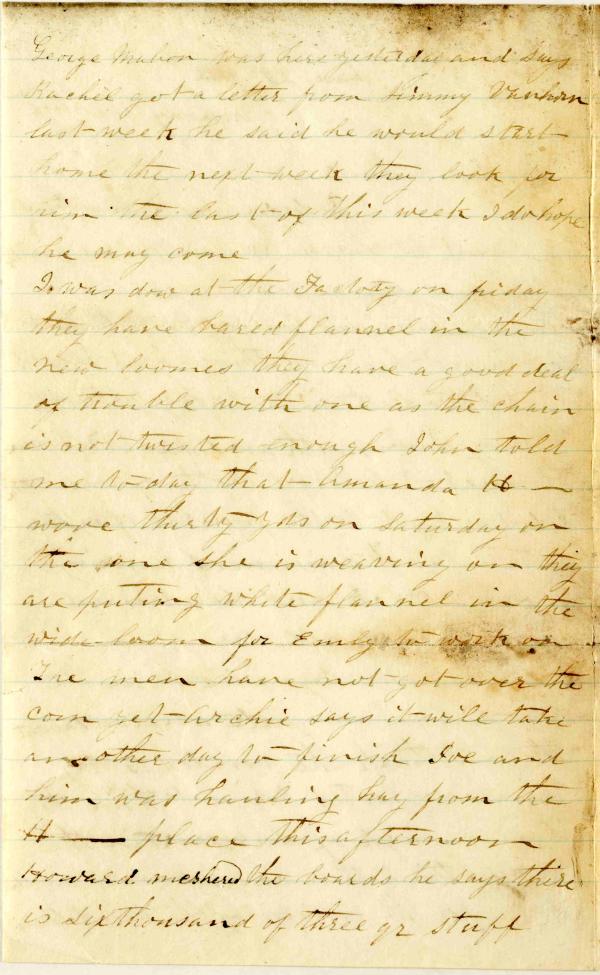 George Mahon was here yesterday and Says
Rachel got a letter from Jimmy Vanhorn
last week he said he would start
home the next week they look for
him the last of this week I do hope
he may come
I was dow at the Factory on friday
they have bared flannel in the
new loomes they have a good deal
of trouble with one as the chain
is not twisted enough John told
me to day that Amanda H —
wove thirty yds on Saturday on
the one she is weaving on they
are puting white flannel in the
wide loom for Emly to work on
The men have not got over the
corn yet Archie says it will take
an other day to finish Joe and
him was hauling hay from the
H — place this afternoon
Howard the boards he says there
is Six thousand of three qr stuff